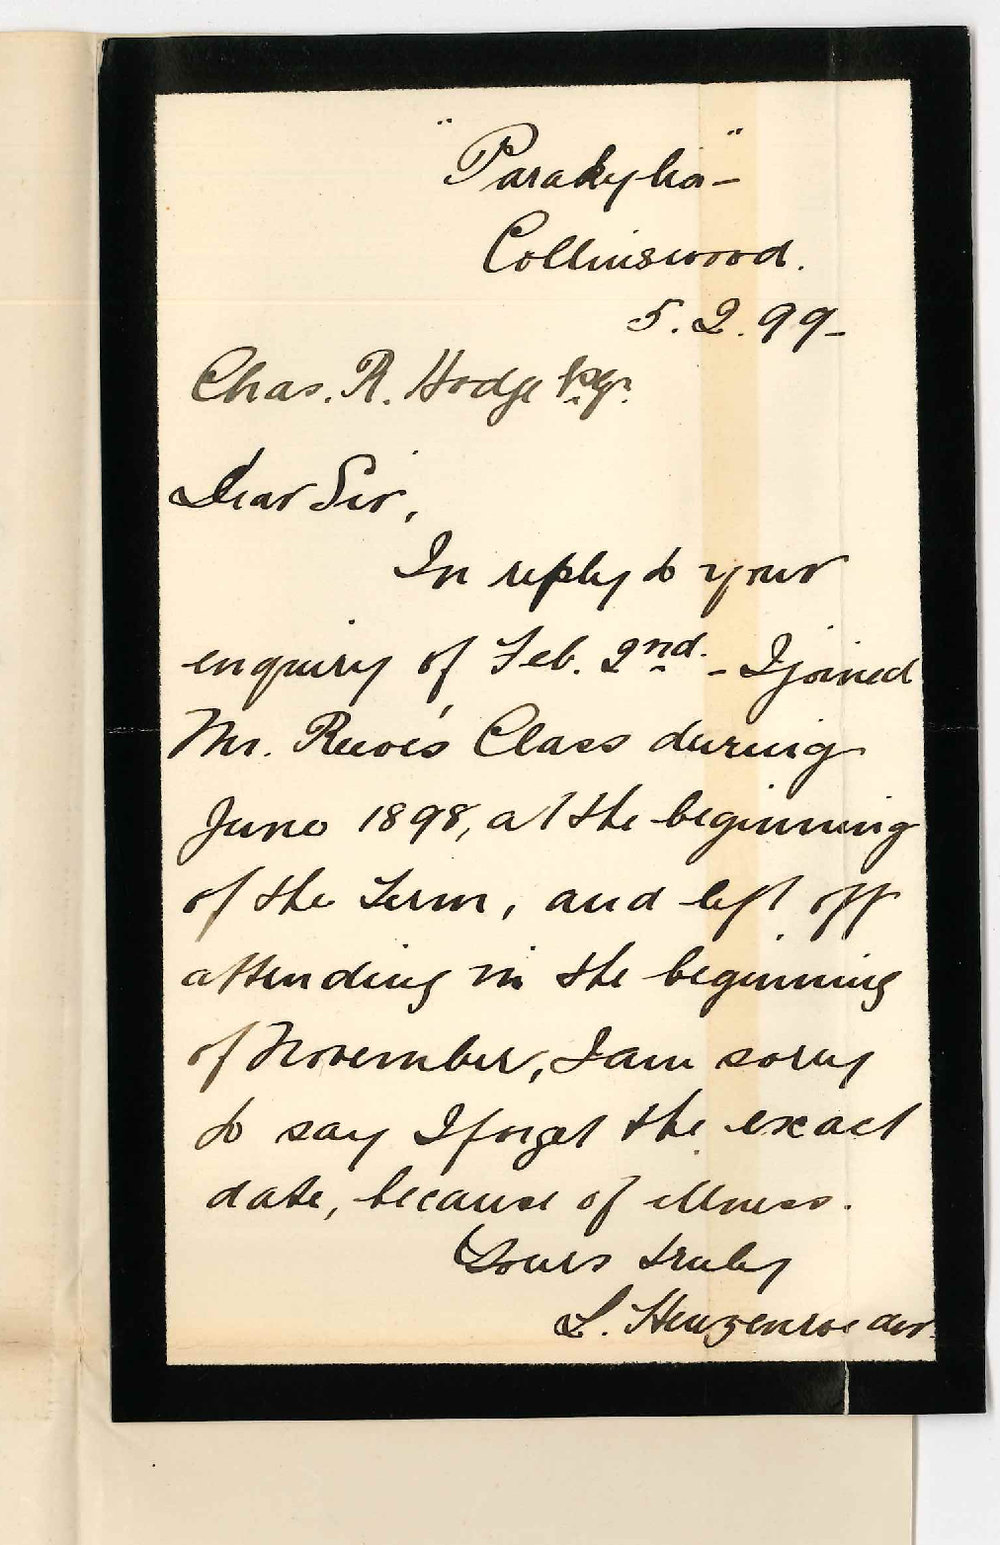 "Parakylia"-
Collinswood.
5.2.99-
Chas. R. Hodge Esqr.
Dear Sir,
In reply to your
enquiry of Feb. 2nd. - I joined
Mr. Reeves' Class during
June 1898, at the beginning
of the Term, and left off
attending in the beginning
of November, I am sorry
to say I forget the exact
date, because of illness.
Yours truly
L. Heuzenroeder.